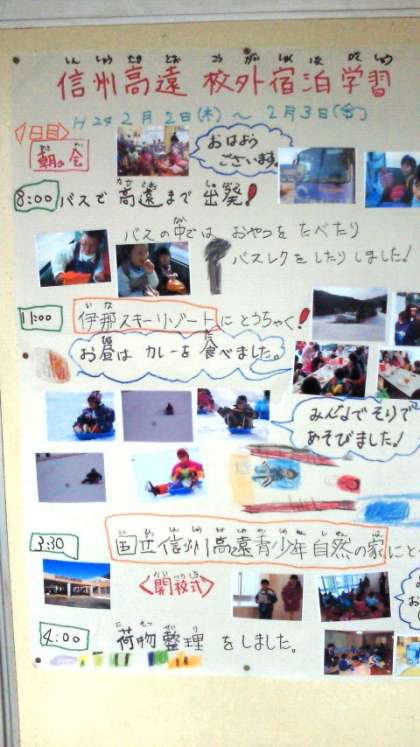 しんしゅうたかとお こうがいしゅくはくがくしゅう
信州高遠 校外宿泊学習
H24 2月2日(木)～2月3日(金)
1日目
朝の会
おはよう
ございます。
8:00 バスで高遠まで出発!
バスの中では おやつを たべたり
バスレクをしたりしました!
11:00 伊那スキーリゾートにとうちゃく!
お昼は カレーを食べました。
みんなでそりで
あそびました!
3:30 国立信州高遠青少年自然の家にと
<開校式>
4:00 荷物整理をしました。